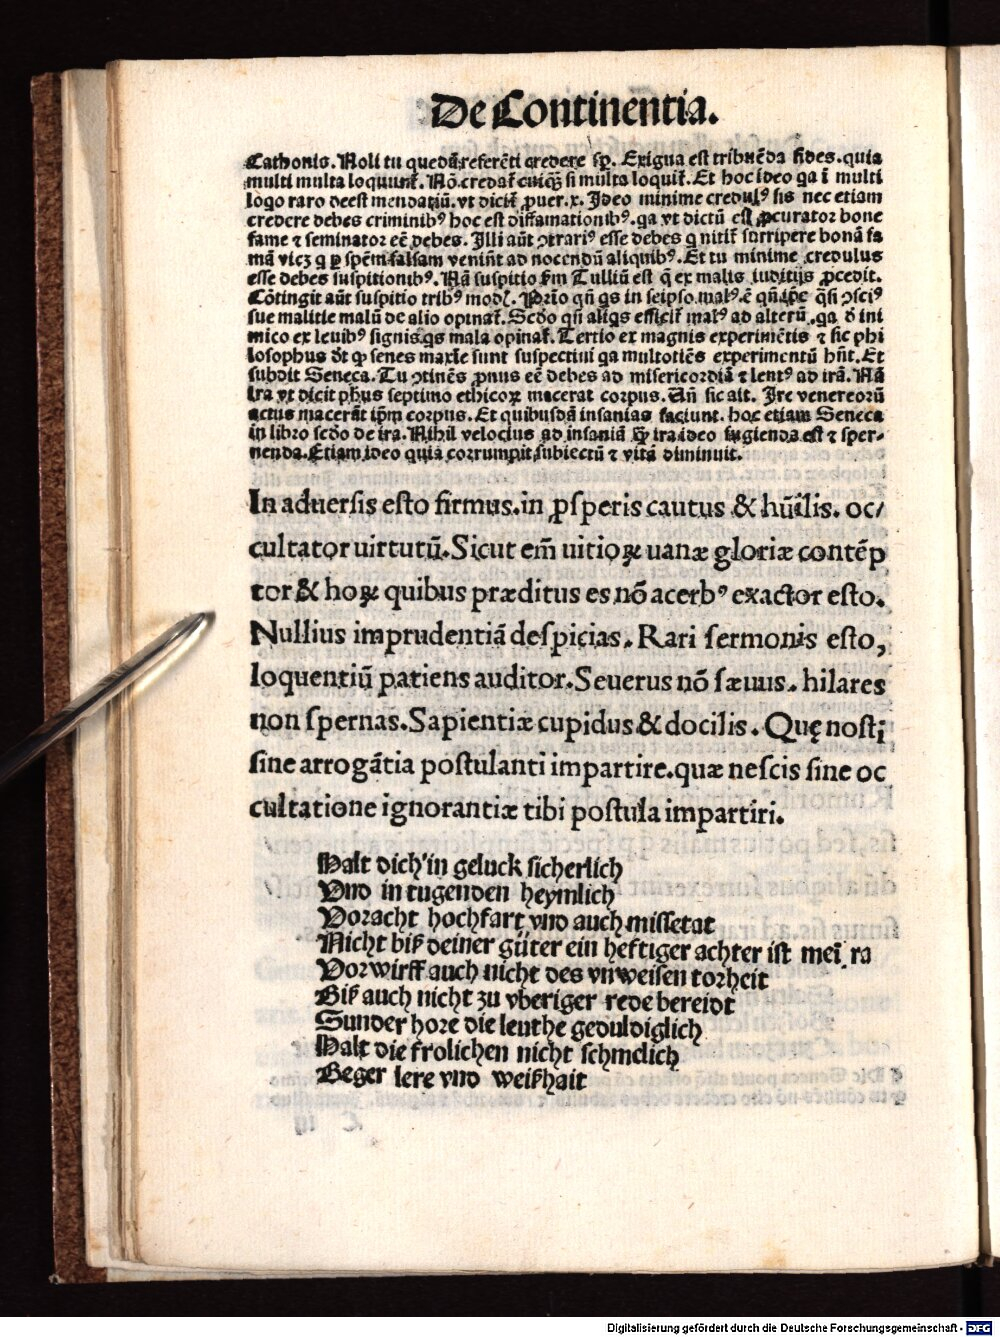 De Continentia.
Cathonis. Noli tu quedā referēti credere sp̄. Exigua est tribuēda fides. quia
multi multa loquunt̄. Nō credat̄ cuiq̄ȝ si multa loquit̄. Et hoc ideo qa ī multi
loqo raro deest mendatiū. vt dicit̄ ꝓuer. x. Ideo minime credulꝰ sis nec etiam
credere debes criminibꝰ hoc est diffamationibꝰ. qa vt dictū est ꝓcurator bone
fame ⁊ seminator eē debes. Illi aūt ꝯtrariꝰ esse debes q nitit̄ surripere bonā fa
mā vicȝ q ꝑ spēm falsam veniūt ad nocendū aliquibꝰ. Et tu minime credulus
esse debes suspitionibꝰ. Nā suspitio ẜm Tulliū est q̄ ex malis iuditijs ꝓcedit.
Cōtingit aūt suspitio tribꝰ modꝭ. Prīo qn̄ qs in seipso malꝰ ē qn̄ ip̄e q̄si ꝯsciꝰ
sue malitie malū de alio opinat̄. Scd̄o qn̄ aliqs efficit̄ malꝰ ad alterū. qa d̄ ini
mico ex leuibꝰ signis qs mala opinat̄. Tertio ex magnis experimētis ⁊ sic phi
losophus d̄t ꝙ senes maxīe sunt suspectiui qa multotiēs experimentū hn̄t. Et
subdit Seneca. Tu ꝯtinēs ꝓnus eē debes ad misericordiā ⁊ lentꝰ ad irā. Nā
ira vt dicit ph̄us septimo ethicoꝝ macerat corpus. Vn̄ sic ait. Ire venereorū
actus macerāt ip̄m corpus. Et quibusdā insanias faciunt. hoc etiam Seneca
in libro scd̄o de ira. Nihil velocius ad insaniā q̄ȝ ira ideo fugienda est ⁊ sper-
nenda. Etiam ideo quia corrumpit subiectū ⁊ vitā diminuit.
In aduersis esto firmus. in ꝓsperis cautus & hūilis. oc/
cultator uirtutū. Sicut em̄ uitioꝝ uanæ gloriæ contēp
tor & hoꝝ quibus præditus es nō acerbꝰ exactor esto.
Nullius imprudentiā despicias. Rari sermonis esto,
loquentiū patiens auditor. Seuerus nō sæuus. hilares
non spernas. Sapientiæ cupidus & docilis. Quę nosti
sine arrogātia postulanti impartire. quæ nescis sine oc
cultatione ignorantiæ tibi postula impartiri.
Halt dich in geluck sicherlich
Vnd in tugenden heymlich
Voracht hochfart vnd auch missetat
Nicht biß deiner güter ein heftiger achter ist mein ra
Vorwirff auch nicht des vnweisen torheit
Biß auch nicht zu vberiger rede bereidt
Sunder hore die leuthe geduldiglich
Halt die frolichen nicht schmelich
Beger lere vnd weißhait
Digitalisierung gefördert durch die Deutsche Forschungsgemeinschaft - DFG